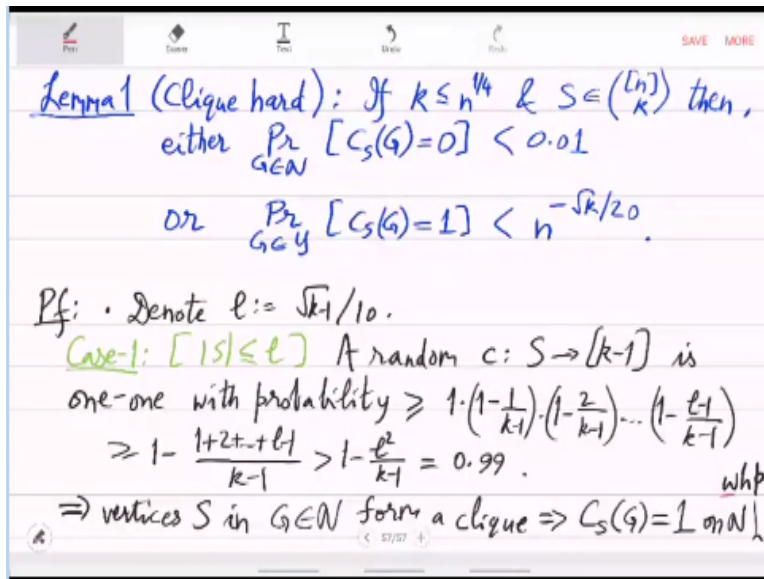 Pen Eraser Text Undo Redo SAVE MORE
Lemma1 (Clique hard): If k ≤ n^{1/4} & S ∈ ([n] k) then,
either Pr_{G∈N} [C_S(G)=0] < 0.01
or Pr_{G∈Y} [C_S(G)=1] < n^{-√k/20}.
Pf: · Denote ℓ := √k-1/10.
Case-1: [|S| ≤ ℓ] A random c: S → [k-1] is
one-one with probability ≥ 1·(1-1/k-1)·(1-2/k-1)...(1-ℓ-1/k-1)
≥ 1- 1+2+...+ℓ-1/k-1 > 1- ℓ²/k-1 = 0.99.
whp
⇒ vertices S in G∈N form a clique ⇒ C_S(G)=1 on N!
< 57/57 +